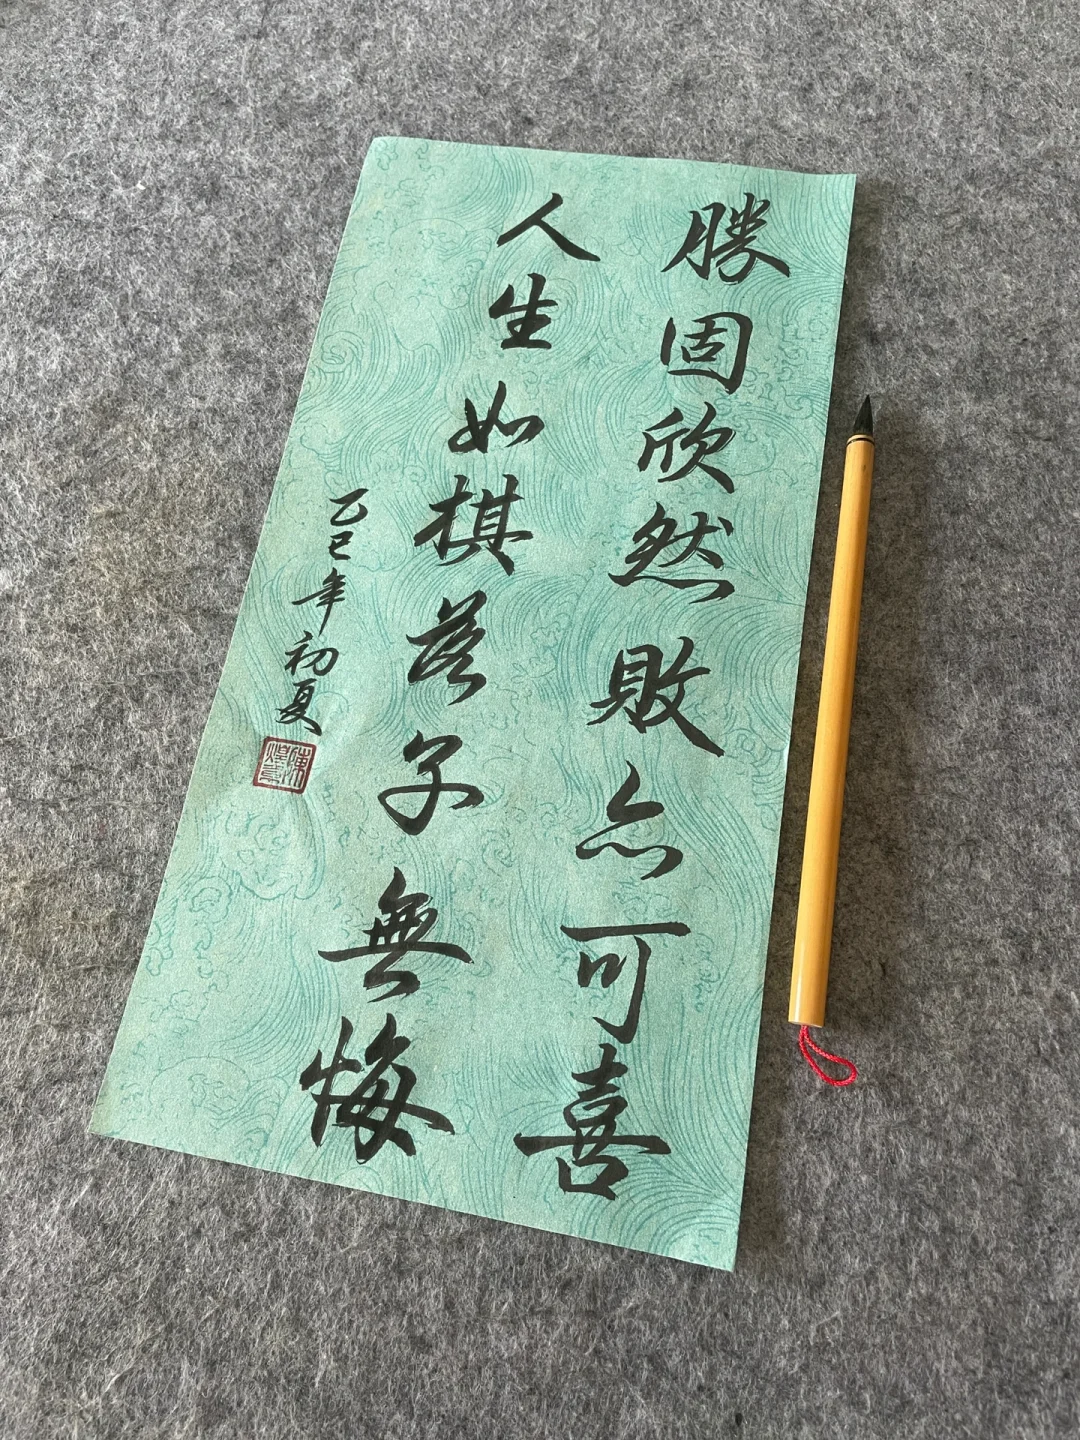 勝固欣然敗亦可喜
人生如棋落子無悔
乙巳年初夏